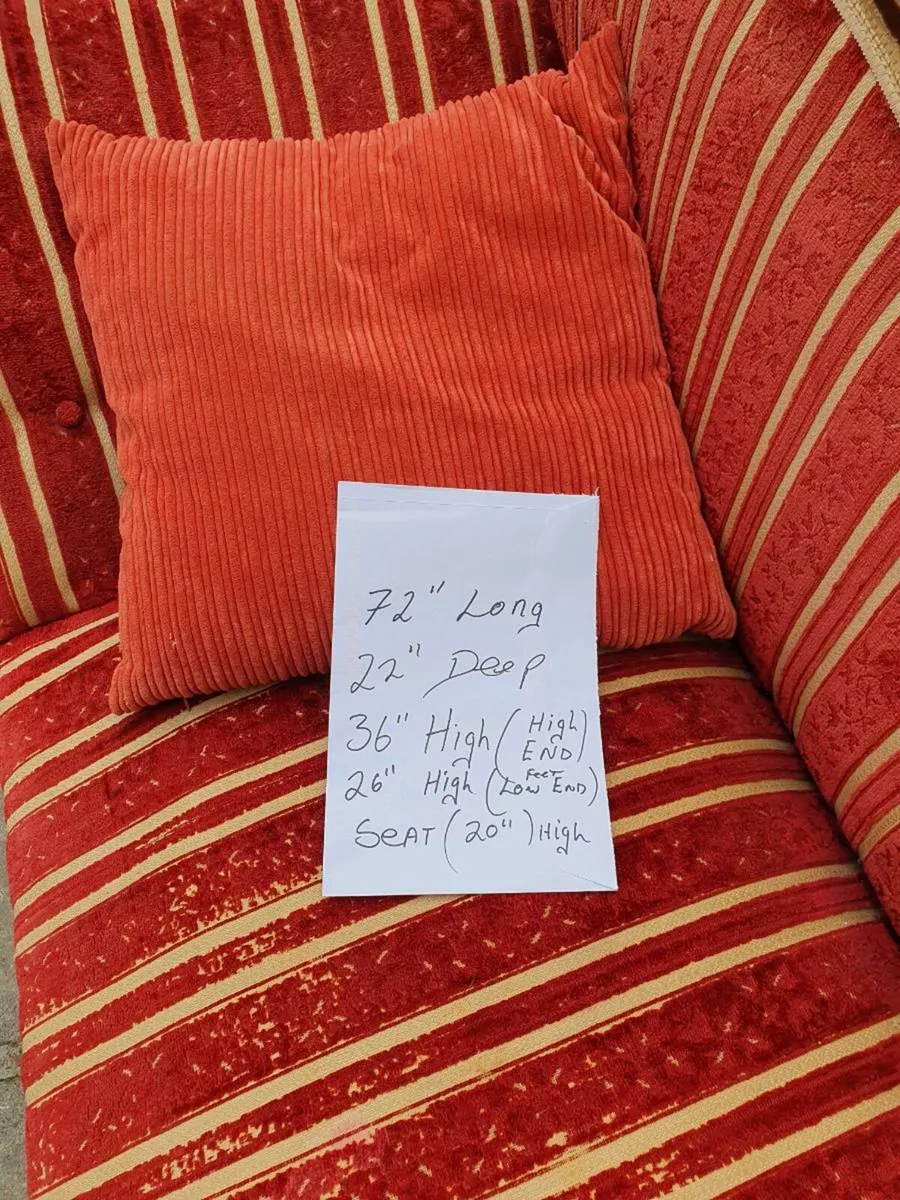 72" Long
22" Deep
36" High (High END)
26" High (Low FEET END)
SEAT (20") High